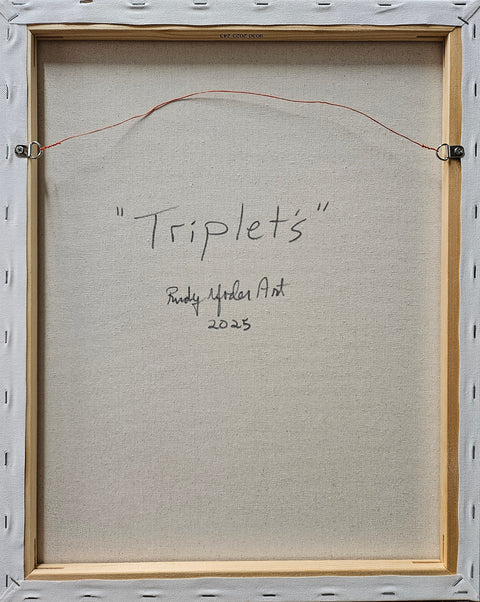 "Triplet's"
Rudy Yoder Art
2025